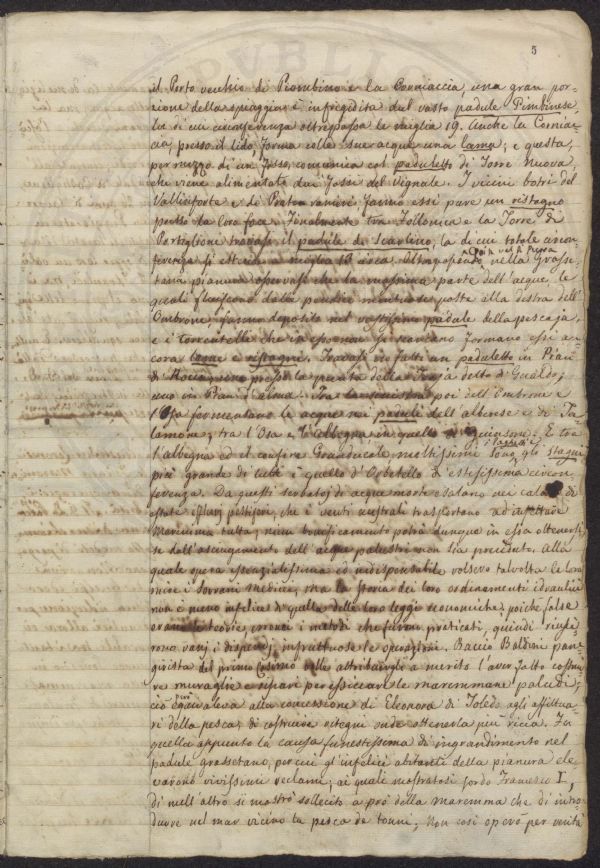 5
il Porto vecchio di Piombino e la Corniaccia una gran por-
zione della spiaggia è infrigidita dal vasto padule Piombinese
la di cui circonferenza oltrepassa le miglia 19. Anche la Cornia-
cia, presso il lido forma colle sue acque una lama; e questa,
per mezzo di un fosso, comunica col paduletto di Torre Nuova
che viene alimentato dai fossi del Vignale. I vicini botri del
e di Pratoranieri fanno essi pure un ristagno
presso la loro foce. Finalmente tra Follonica e la Torre di
Portiglione trovasi il padule di Scarlino, la di cui totale circon-
ferenza si estende a miglia 13 circa. nella Grosse-
tana pianura osservasi che la massima parte dell'acque, le
quali fluiscono dalle pendici poste alla destra dell'
Ombrone, fanno deposito nel vastissimo padule della pescaja,
e i torrentelli che in esso non si scaricano formano essi an-
cora lame e ristagni. Trovasi infatti un paduletto in Pian
di Rocca, uno presso la punta della Troja detto di Gualdo;
uno in Pian d'Alma. Tra la sinistra poi dell'Ombrone e
l'Osa fermentano le acque nei paduli dell'albense e di Ta-
lamone; tra l'Osa e l'Albegna in quello di . E tra
l'albegna ed il confine Granducale moltissimi sono gli stagni
più grande di tutti è quello d'Orbetello d'estesissima circon
ferenza. Da questi serbatoj di acque morte esalano nei calori di
estate effluvj pestiferi, che i venti australi trasportano ad infettare
Maremma tutta; niun bonificamento potrà dunque in essa ottenersi
se dall'asciugamento dell'acque palustri non sia preceduto. Alla
quale opera essenzialissima ed indispensabile volsero talvolta le loro
mire i Sovrani Medicei, ma la storia dei loro ordinamenti idraulici
non è meno infelice di quella delle loro leggi economiche, poiché false
erano le teorie, erronei i metodi che furon praticati, quindi riusci-
rono vani i dispendj, infruttuose le operazioni. Baccio Baldini pane
girista del primo Cosimo volle attribuirgli a merito l'aver fatto costrui-
re muraglie e ripari per essiccare le maremmane paludi;
ciò però equivaleva alla concessione di Eleonora di Toledo agli affittua-
ri della pesca, di costruire ritegni onde ottenerla più ricca. Fu
quella appunto la causa funestissima di ingrandimento nel
padule grossetano, per cui gl'infelici abitanti della pianura ele-
varono vivissimi reclami; ai quali mostratosi sordo Francesco I,
di null'altro si mostrò sollecito a prò della maremma che di intro-
durre nel mar vicino la pesca de' tonni; Non così operò per verità